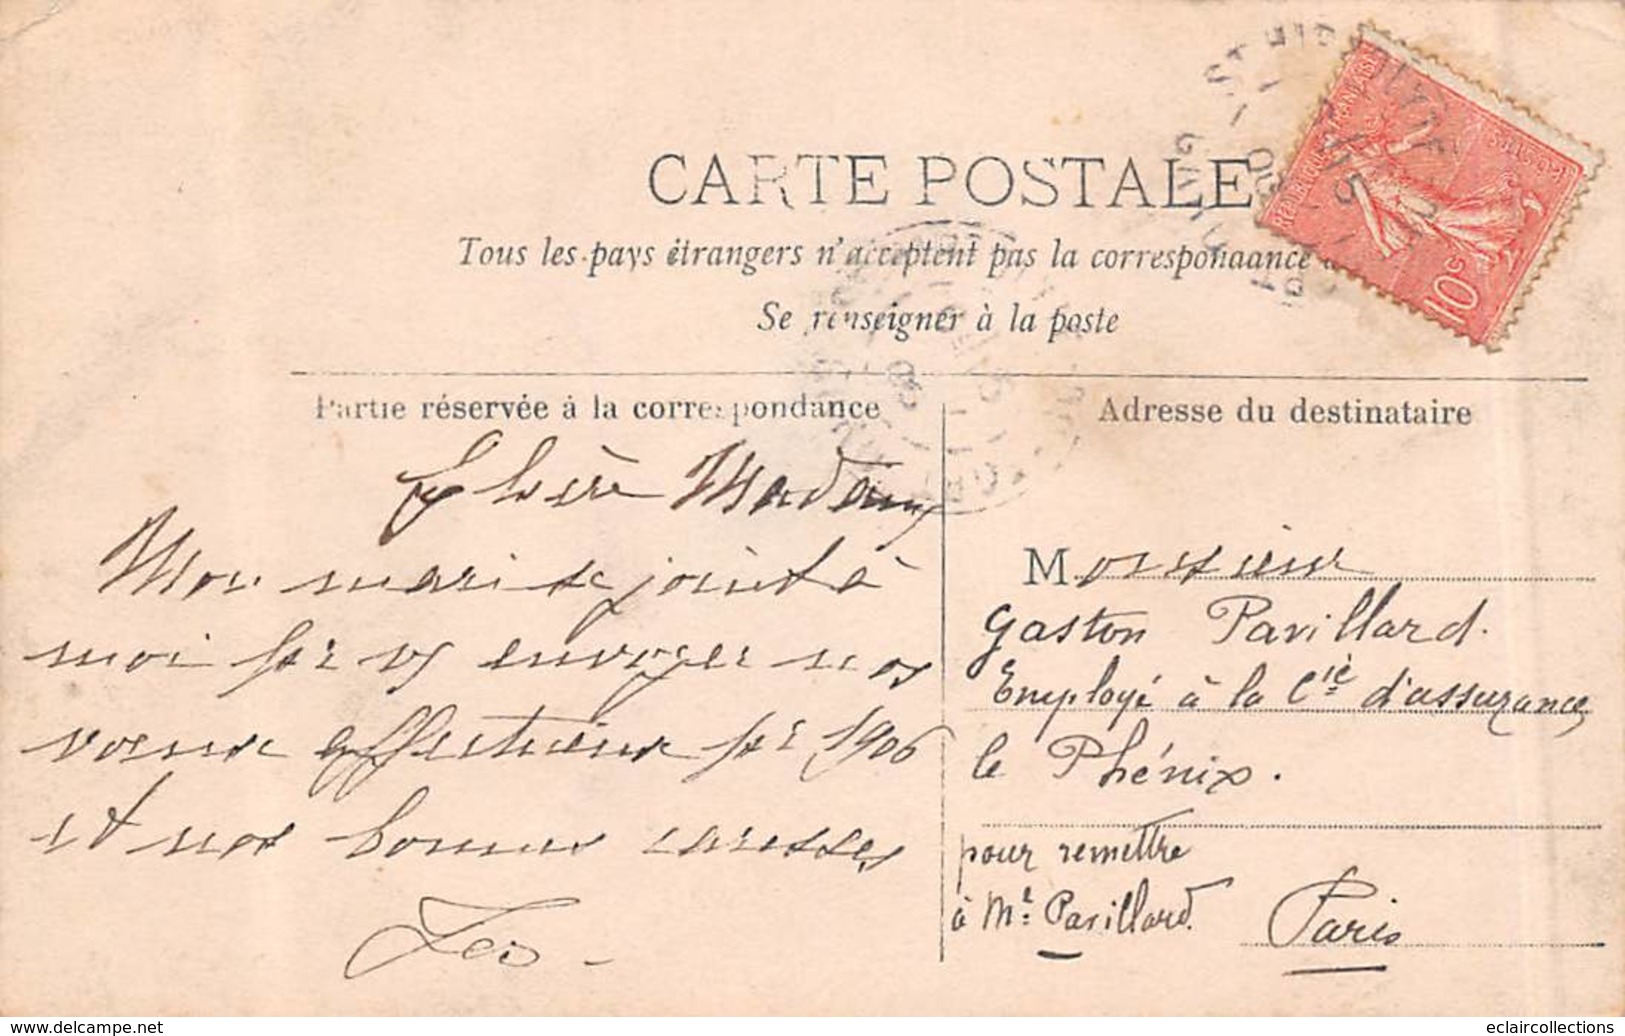 CARTE POSTALE
Tous les pays étrangers n'acceptent pas la correspondance
Se renseigner à la poste
Partie réservée à la correspondance
Adresse du destinataire
Chère Madame
Mon mari se joint à
moi pr vs envoyer nos
voeux affectueux pr 1906
et nos bonnes caresses
Monsieur
Gaston Pavillard.
Employé à la Cie d'assurances
le Phénix.
pour remettre
à Me Pavillard.
Paris
REPUBLIQUE FRANÇAISE
POSTES
10c
www.delcampe.net
eclaircollections